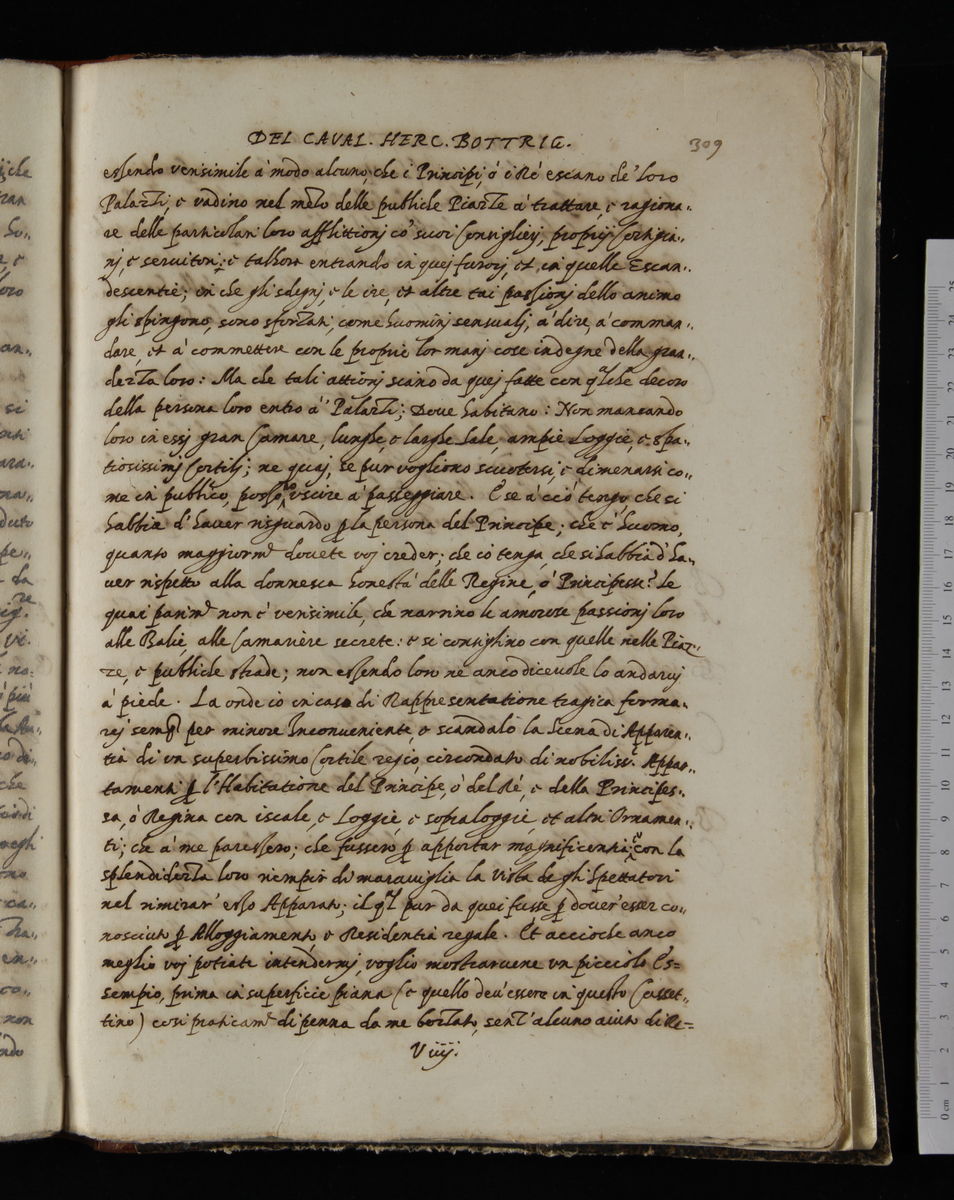 DEL CAVAL. HERC. BOTTRIG.
309
essendo verisimile à modo alcuno, che i Principi, ò i Ré escano de' loro
Palazzi, e vadino nel mezo delle publiche Piazze à trattare, e ragiona..
re delle particolari loro afflittionj cō suoi Consiglierj, proprij Cortigia..
nj, e seruitori; e talhora entrando in quej furorj, et in quelle Escan..
descentie; in che gli sdegnj, e le ire, et altre tai passionj dello animo
gli spingono, sono sforzati; come huominj sensualj, à dire, à comman..
dare, et à commettere con le proprie lor manj cose indegne della gran..
dezza loro: Ma che tali attionj sieno da quej fatte con qlche decoro
della persona loro entro à' Palazzi; Doue habitano: Non mancando
loro in essj gran Camare, lunghe, e larghe Sale, ampie Loggie, e spa..
tiosissimj Cortilj; ne quaj, se pur vogliono scuotersi, e dimenarsi co..
me in publico, possono vscire à passeggiare. E se à ciò tengo, che si
habbia d'hauer risguardo p la persona del Principe; che è huomo,
quanto maggiormte douete voj creder; che cō tenga, che si habbia d'ha..
uer rispetto alla donnesca honestà delle Regine, ò Principesse? Le
quai parimte non è verisimile, che narrino le amorose passionj loro
alle Balie, alle Camariere secrete: e si consiglino con quelle nelle Piaz..
ze, e publiche strade; non essendo loro ne anco diceuole lo andaruj
à piede. La onde io in caso di Rappresentatione tragica forma..
rej sempre per minore Inconueniente, e scandalo la Scena di Apparen..
tia di un superbissimo Cortile regio, circondato di nobiliss.i Appar..
tamenti p l'Habitatione del Principe, ò del Ré, e della Principes..
sa, ò Regina con iscale, e Loggie, e sopraloggie, et altri Ornamen..
ti; che à me paressero; che fussero p apportar magnificentia: e con la
splendidezza loro riempir di marauiglia la Vista de gli Spettatori
nel rimirar' esso Apparato; il ql pur da quei fusse p douer'esser co..
nosciuto p Alloggiamento, e Residentia regale. Et acciochè anco
meglio voj potiate intendermj, voglio mostraruene vn picciolo Es=
sempio, prima in superficie piana (e quello deu'essere in questo Casset..
tino) cosi praticamte di penna da me bozzato, senz'alcuno aiuto di Re-=
V iiij.